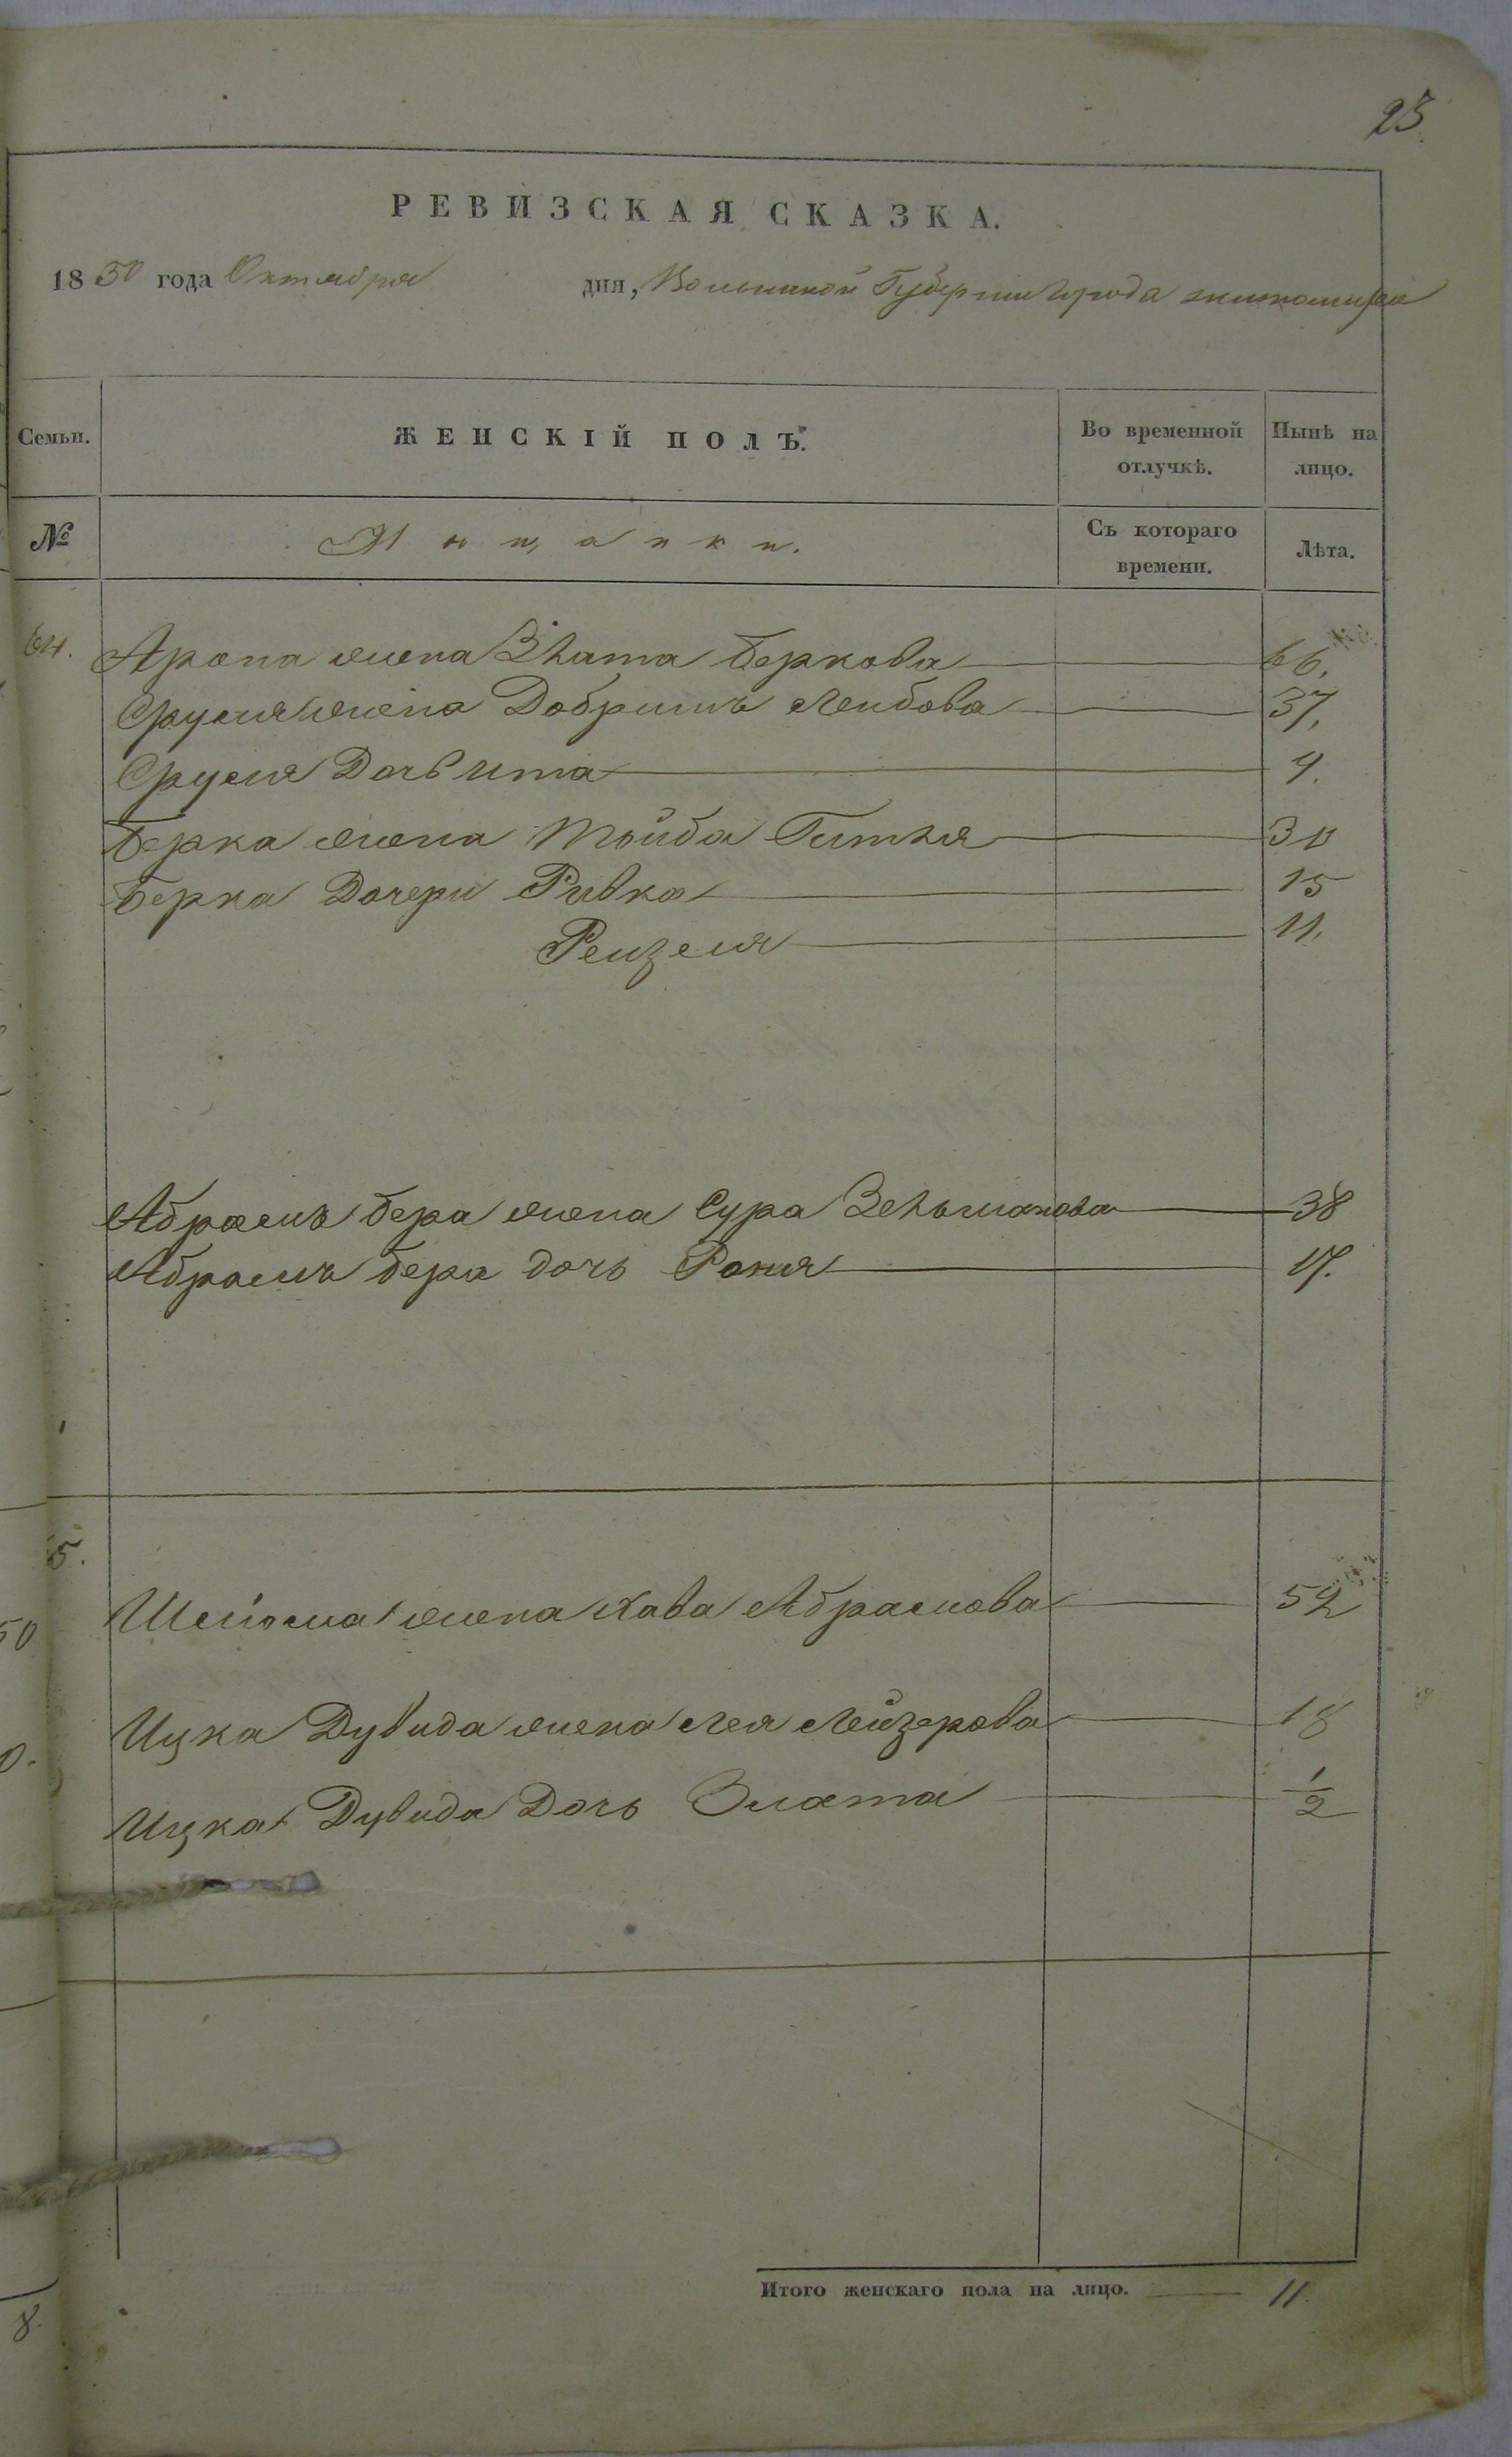 23.
РЕВИЗСКАЯ СКАЗКА.
1850 года Октября дня, Волынской Губернии города Житомира
Семьи. ЖЕНСКІЙ ПОЛЪ. Во временной отлучкѣ. Нынѣ на лицо.
№ Мѣщанки. Съ котораго времени. Лѣта.
64. Арона жена Злата Беркова 66.
Сруля жена Добришъ Лейбова 37.
Сруля Дочь Ита 9.
Берка жена Тойба Гитля 30
Берка Дочери Ривка 15
Рейзеля 11.
Абрамъ Бера жена Сура Зельманова 38
Абрамъ Бера дочь Рохля 17.
5.
Шлиома жена Хава Абрамова 52
50
Ицка Дувида жена Лея Лейзерова 18
0.
Ицка Дувида Дочь Злата 1/2
Итого женскаго пола на лицо. 11.
8.